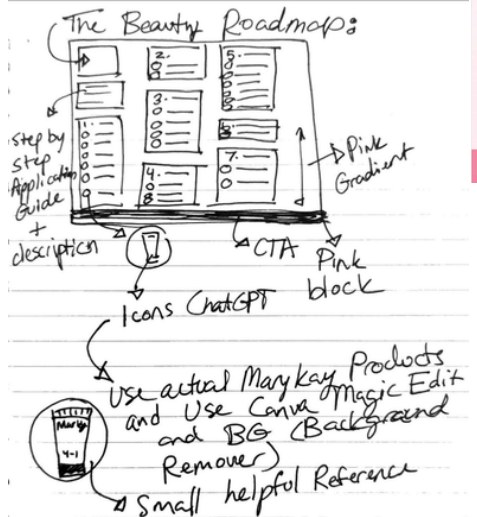 The Beauty Roadmap:
1.
2.
3.
4.
5.
6.
7.
Step by
Step
Application
Guide
+
description
Pink
Gradient
CTA
Pink
block
Icons ChatGPT
Use actual Mary Kay Products
and Use Canva Magic Edit
and BG (Background
Remover)
Mary K
4-1
Small helpful Reference